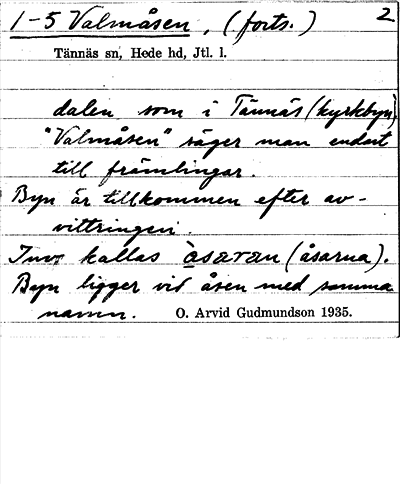 1-5 Valmåsen, (forts.) 2
Tännäs sn, Hede hd, Jtl. l.
dalen som i Tännäs (kyrkbyn).
"Valmåsen" säger man endast
till främlingar.
Byn är tillkommen efter av-
vittringen.
Inv. kallas åsaran (åsarna).
Byn ligger vid åsen med samma
namn. O. Arvid Gudmundson 1935.